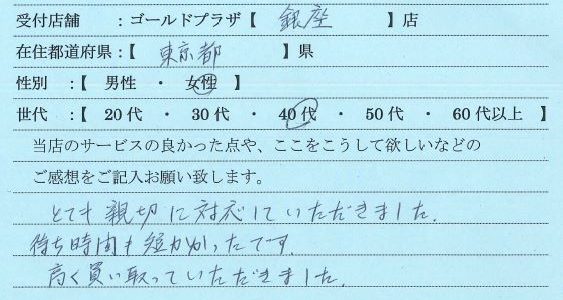 受付店舗　：ゴールドプラザ【　銀座　】店
在住都道府県：【　東京都　】県
性別　：【　男性　・　女性　】
世代　：【　20代　・　30代　・　40代　・　50代　・　60代以上　】
当店のサービスの良かった点や、ここをこうして欲しいなどの
ご感想をご記入お願い致します。
とても親切に対応していただきました。
待ち時間も短かかったです。
高く買い取っていただきました。